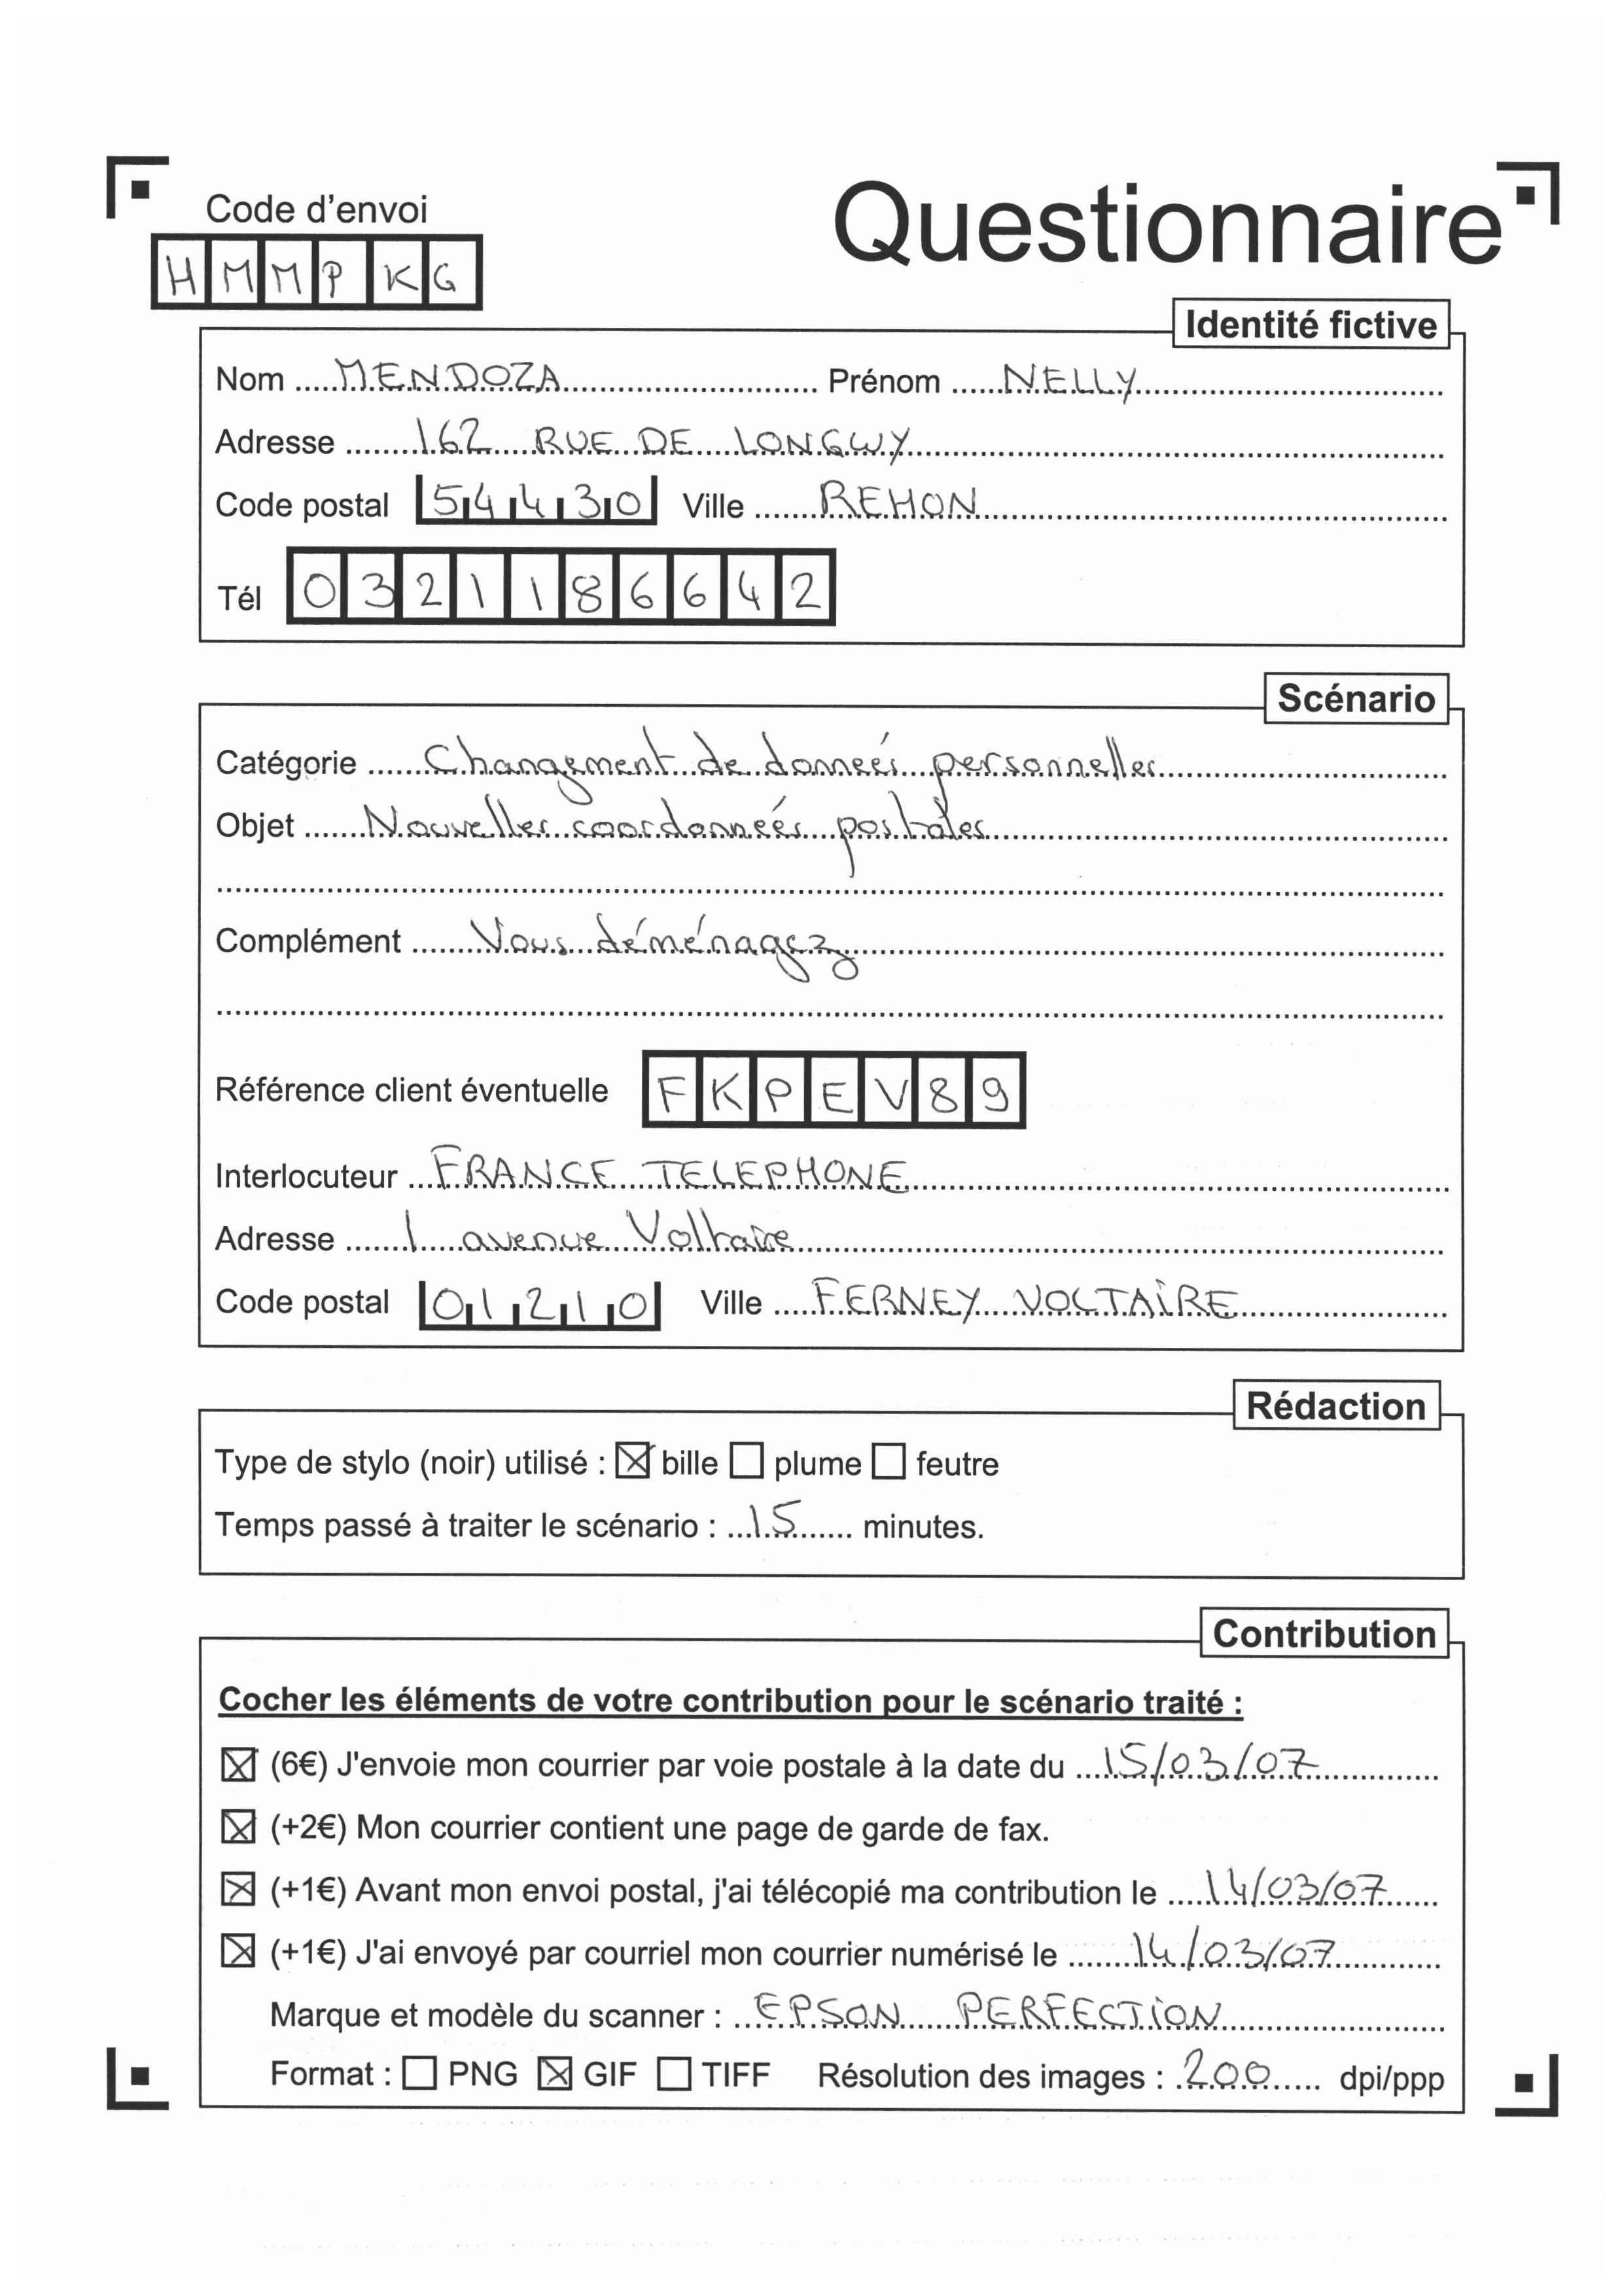 Code d'envoi
Questionnaire
HMMPKG
Identité fictive
Nom MENDOZA Prénom NELLY
Adresse 162 RUE DE LONGWY
Code postal 54430 Ville REHON
Tél 0321186642
Scénario
Catégorie Changement de données personnelles
Objet Nouvelles coordonnées postales
Complément Vous déménagez
Référence client éventuelle FKPEV89
Interlocuteur FRANCE TELEPHONE
Adresse 1 avenue Voltaire
Code postal 01210 Ville FERNEY VOLTAIRE
Rédaction
Type de stylo (noir) utilisé : ☒ bille ☐ plume ☐ feutre
Temps passé à traiter le scénario : 15 minutes.
Contribution
Cocher les éléments de votre contribution pour le scénario traité :
☒ (6€) J'envoie mon courrier par voie postale à la date du 15/03/07
☒ (+2€) Mon courrier contient une page de garde de fax.
☒ (+1€) Avant mon envoi postal, j'ai télécopié ma contribution le 14/03/07
☒ (+1€) J'ai envoyé par courriel mon courrier numérisé le 14/03/07
Marque et modèle du scanner : EPSON PERFECTION
Format : ☐ PNG ☒ GIF ☐ TIFF Résolution des images : 200 dpi/ppp